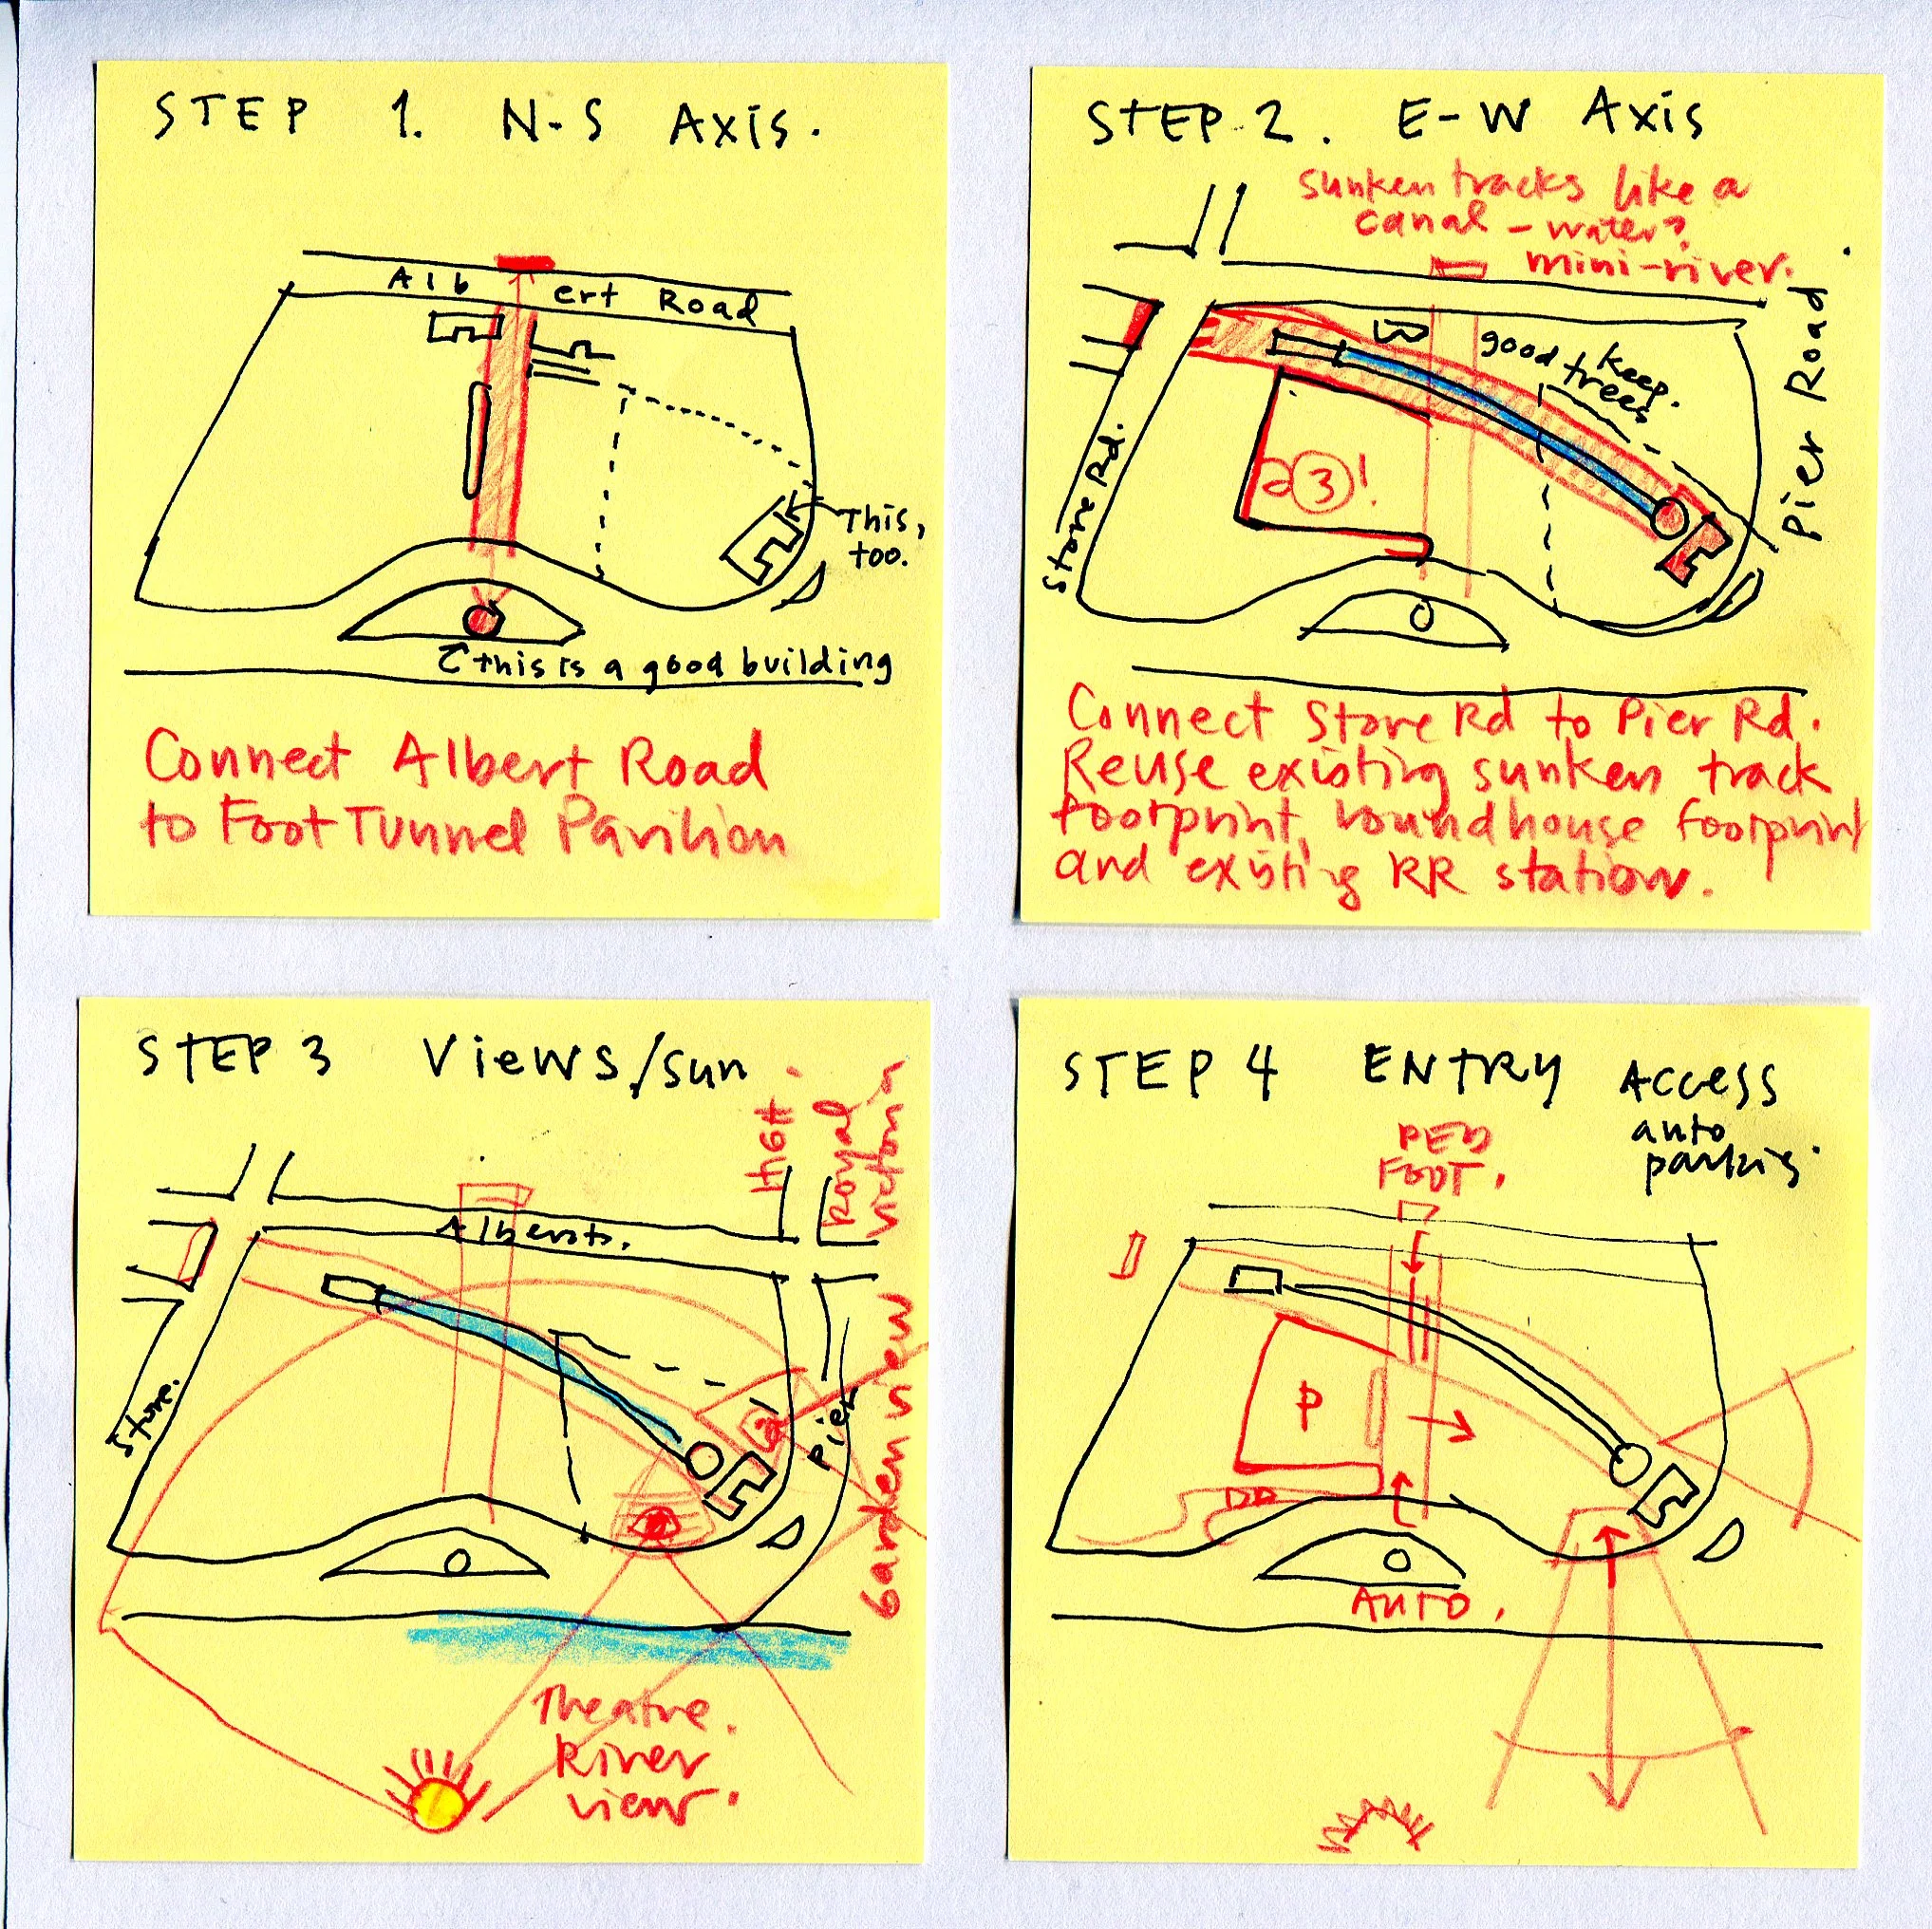 STEP 1. N-S AXIS.
Albert Road
This,
too.
this is a good building
Connect Albert Road
to Foot Tunnel Pavilion
STEP 2. E-W AXIS
sunken tracks like a
canal - water?
mini-river.
good trees
keep.
Pier Road
Store Rd.
3!
Connect Store Rd to Pier Rd.
Reuse existing sunken track
footprint, roundhouse footprint
and existing RR station.
STEP 3 Views/Sun
Royal
Victoria
Store.
Pier
Garden view
Theatre.
River
view.
STEP 4 ENTRY ACCESS
auto
parking.
PED
FOOT.
P
AUTO.